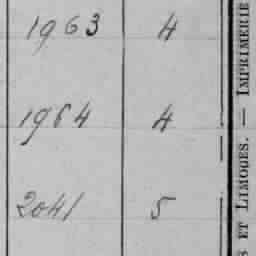 1963 4
1964 4
2041 5
ET LIMOGES. — IMPRIMERIE